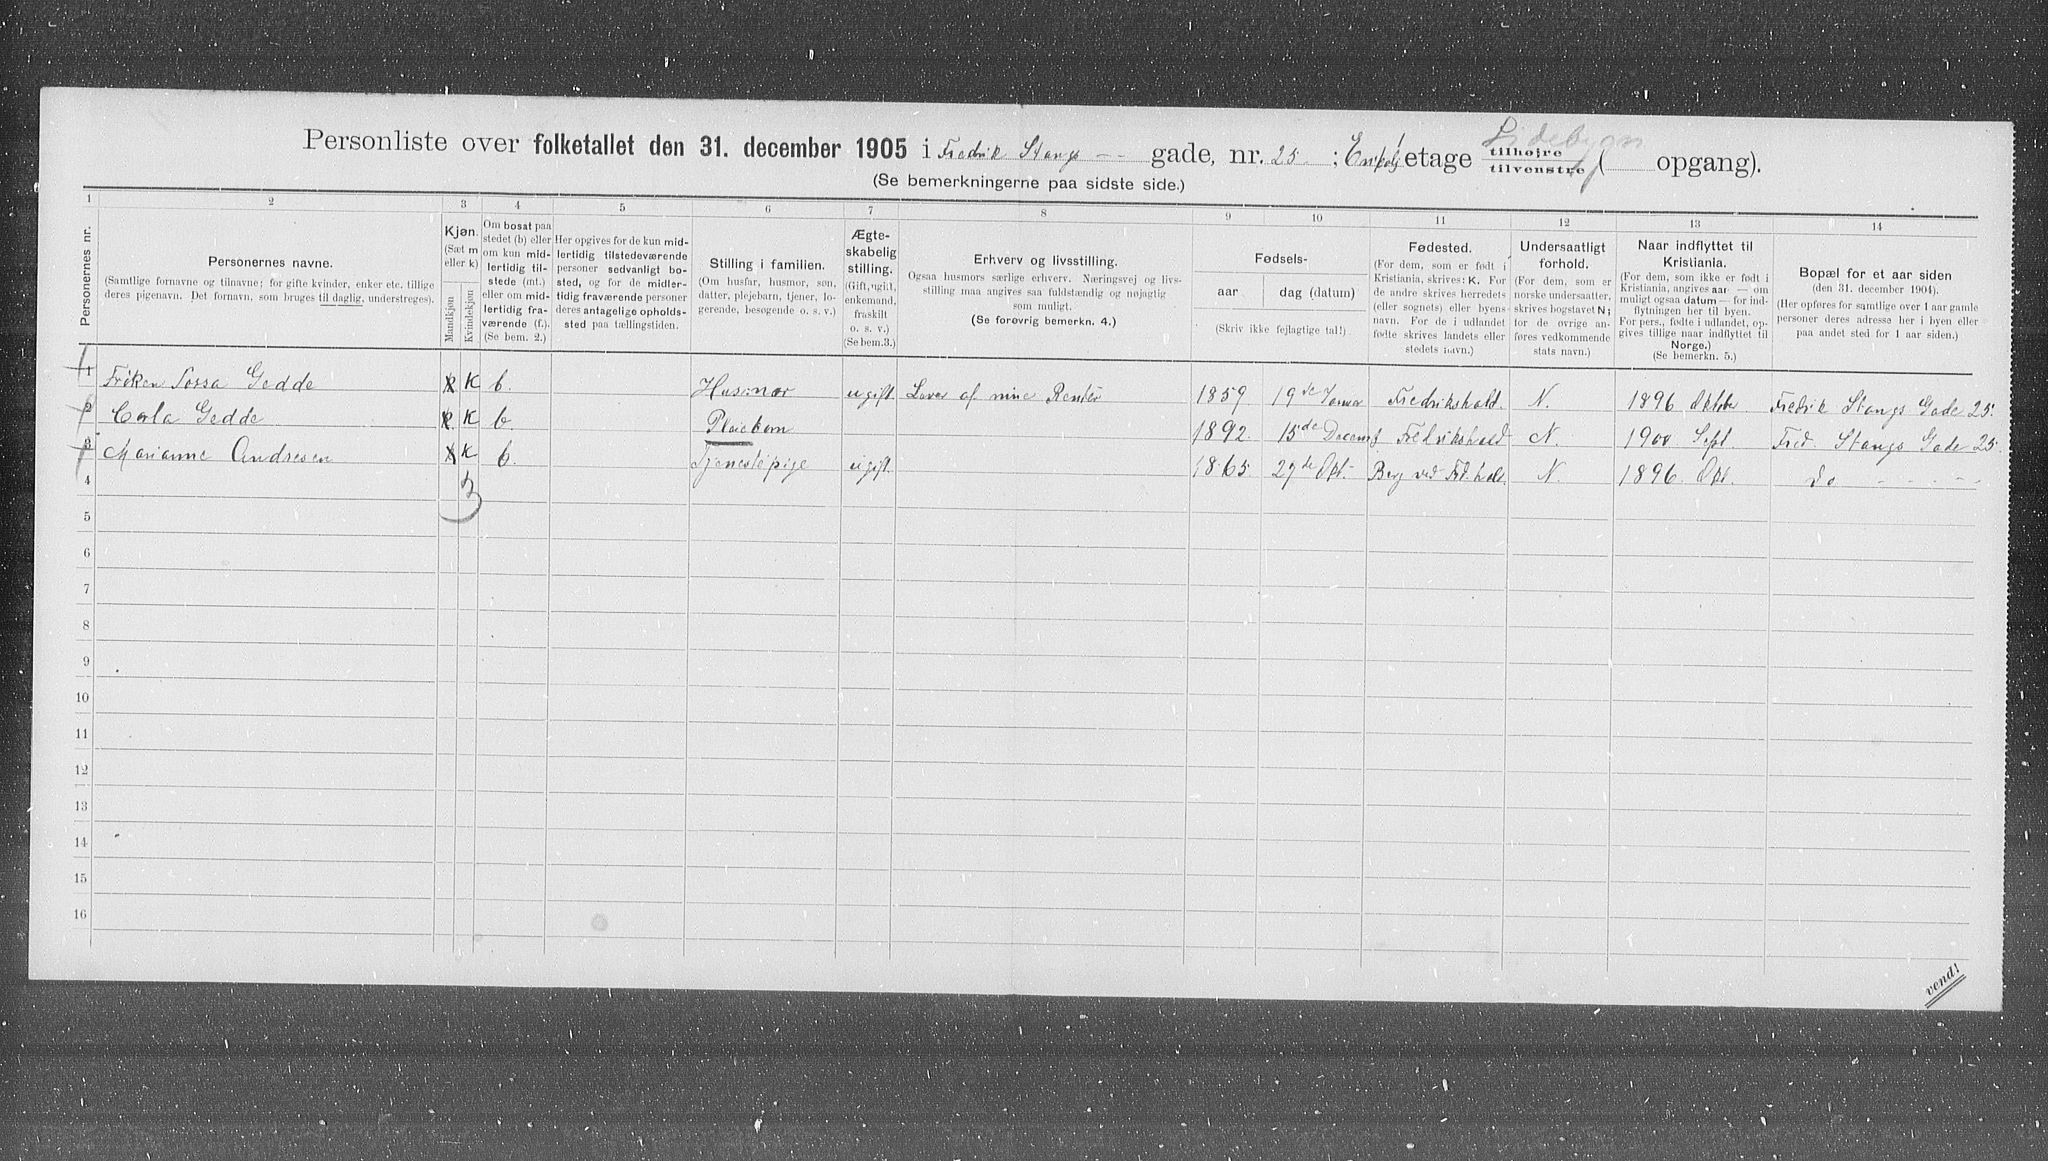 Personliste over folketallet den 31. december 1905 i Fredrik Stangs -- gade, nr. 25 ; etage tilhøire tilvenstre ( opgang).
Sidebygn
(Se bemerkningerne paa sidste side.)
1 2 3 4 5 6 7 8 9 10 11 12 13 14
Personernes nr.
Personernes navne.
(Samtlige fornavne og tilnavne; for gifte kvinder, enker etc. tillige
deres pigenavn. Det fornavn, som bruges til daglig, understreges).
Kjøn.
(Sæt m
eller k)
Mandkjøn
Kvindekjøn
Om bosat paa
stedet (b) eller
om kun mid-
lertidig til-
stede (mt.)
eller om mid-
lertidig fra-
værende (f.).
(Se bem. 2.)
Her opgives for de kun mid-
lertidig tilstedeværende
personer sedvanligt bo-
sted, og for de midler-
tidig fraværende personer
deres antagelige opholds-
sted paa tællingstiden.
Stilling i familien.
(Om husfar, husmor, søn,
datter, plejebarn, tjener, lo-
gerende, besøgende o. s. v.)
Ægte-
skabelig
stilling.
(Gift, ugift,
enkemand,
fraskilt
o. s. v.)
(Se bem.3.)
Erhverv og livsstilling.
Ogsaa husmors særlige erhverv. Næringsvej og livs-
stilling maa angives saa fuldstændig og nøjagtig
som muligt.
(Se forøvrig bemerkn. 4.)
Fødsels-
aar dag (datum)
(Skriv ikke fejlagtige tal!)
Fødested.
(For dem, som er født i
Kristiania, skrives: K. For
de andre skrives herredets
(eller sognets) eller byens
navn. For de i udlandet
fødte skrives landets eller
stedets navn.)
Undersaatligt
forhold.
(For dem, som er
norske undersaatter,
skrives bogstavet N;
for de øvrige an-
føres vedkommende
stats navn.)
Naar indflyttet til
Kristiania.
(For dem, som ikke er født i
Kristiania, angives aar — om
muligt ogsaa datum — for ind-
flytningen her til byen.
For pers., fødte i udlandet, op-
gives tillige naar indflyttet til
Norge.)
(Se bemerkn. 5.)
Bopæl for et aar siden
(den 31. december 1904).
(Her opføres for samtlige over 1 aar gamle
personer deres adresse her i byen eller
paa andet sted for 1 aar siden.)
1 Frøken Sossa Gedde K b. Husmor ugift Lever af mine Renter 1859 19de Januar Fredrikshald. N. 1896 Oktober Fredrik Stangs Gade 25.
2 Carla Gedde K b. Pleiebarn 1892. 15de Decemb Fredrikshald N. 1900 Sept Fred. Stangs Gade 25.
3 Marianne Andresen K b. Tjenestepige ugift. 1865. 29de Okt. Berg ved Frd.hald. N. 1896. Okt. do - - - -
3
4
5
6
7
8
9
10
11
12
13
14
15
16
vend!